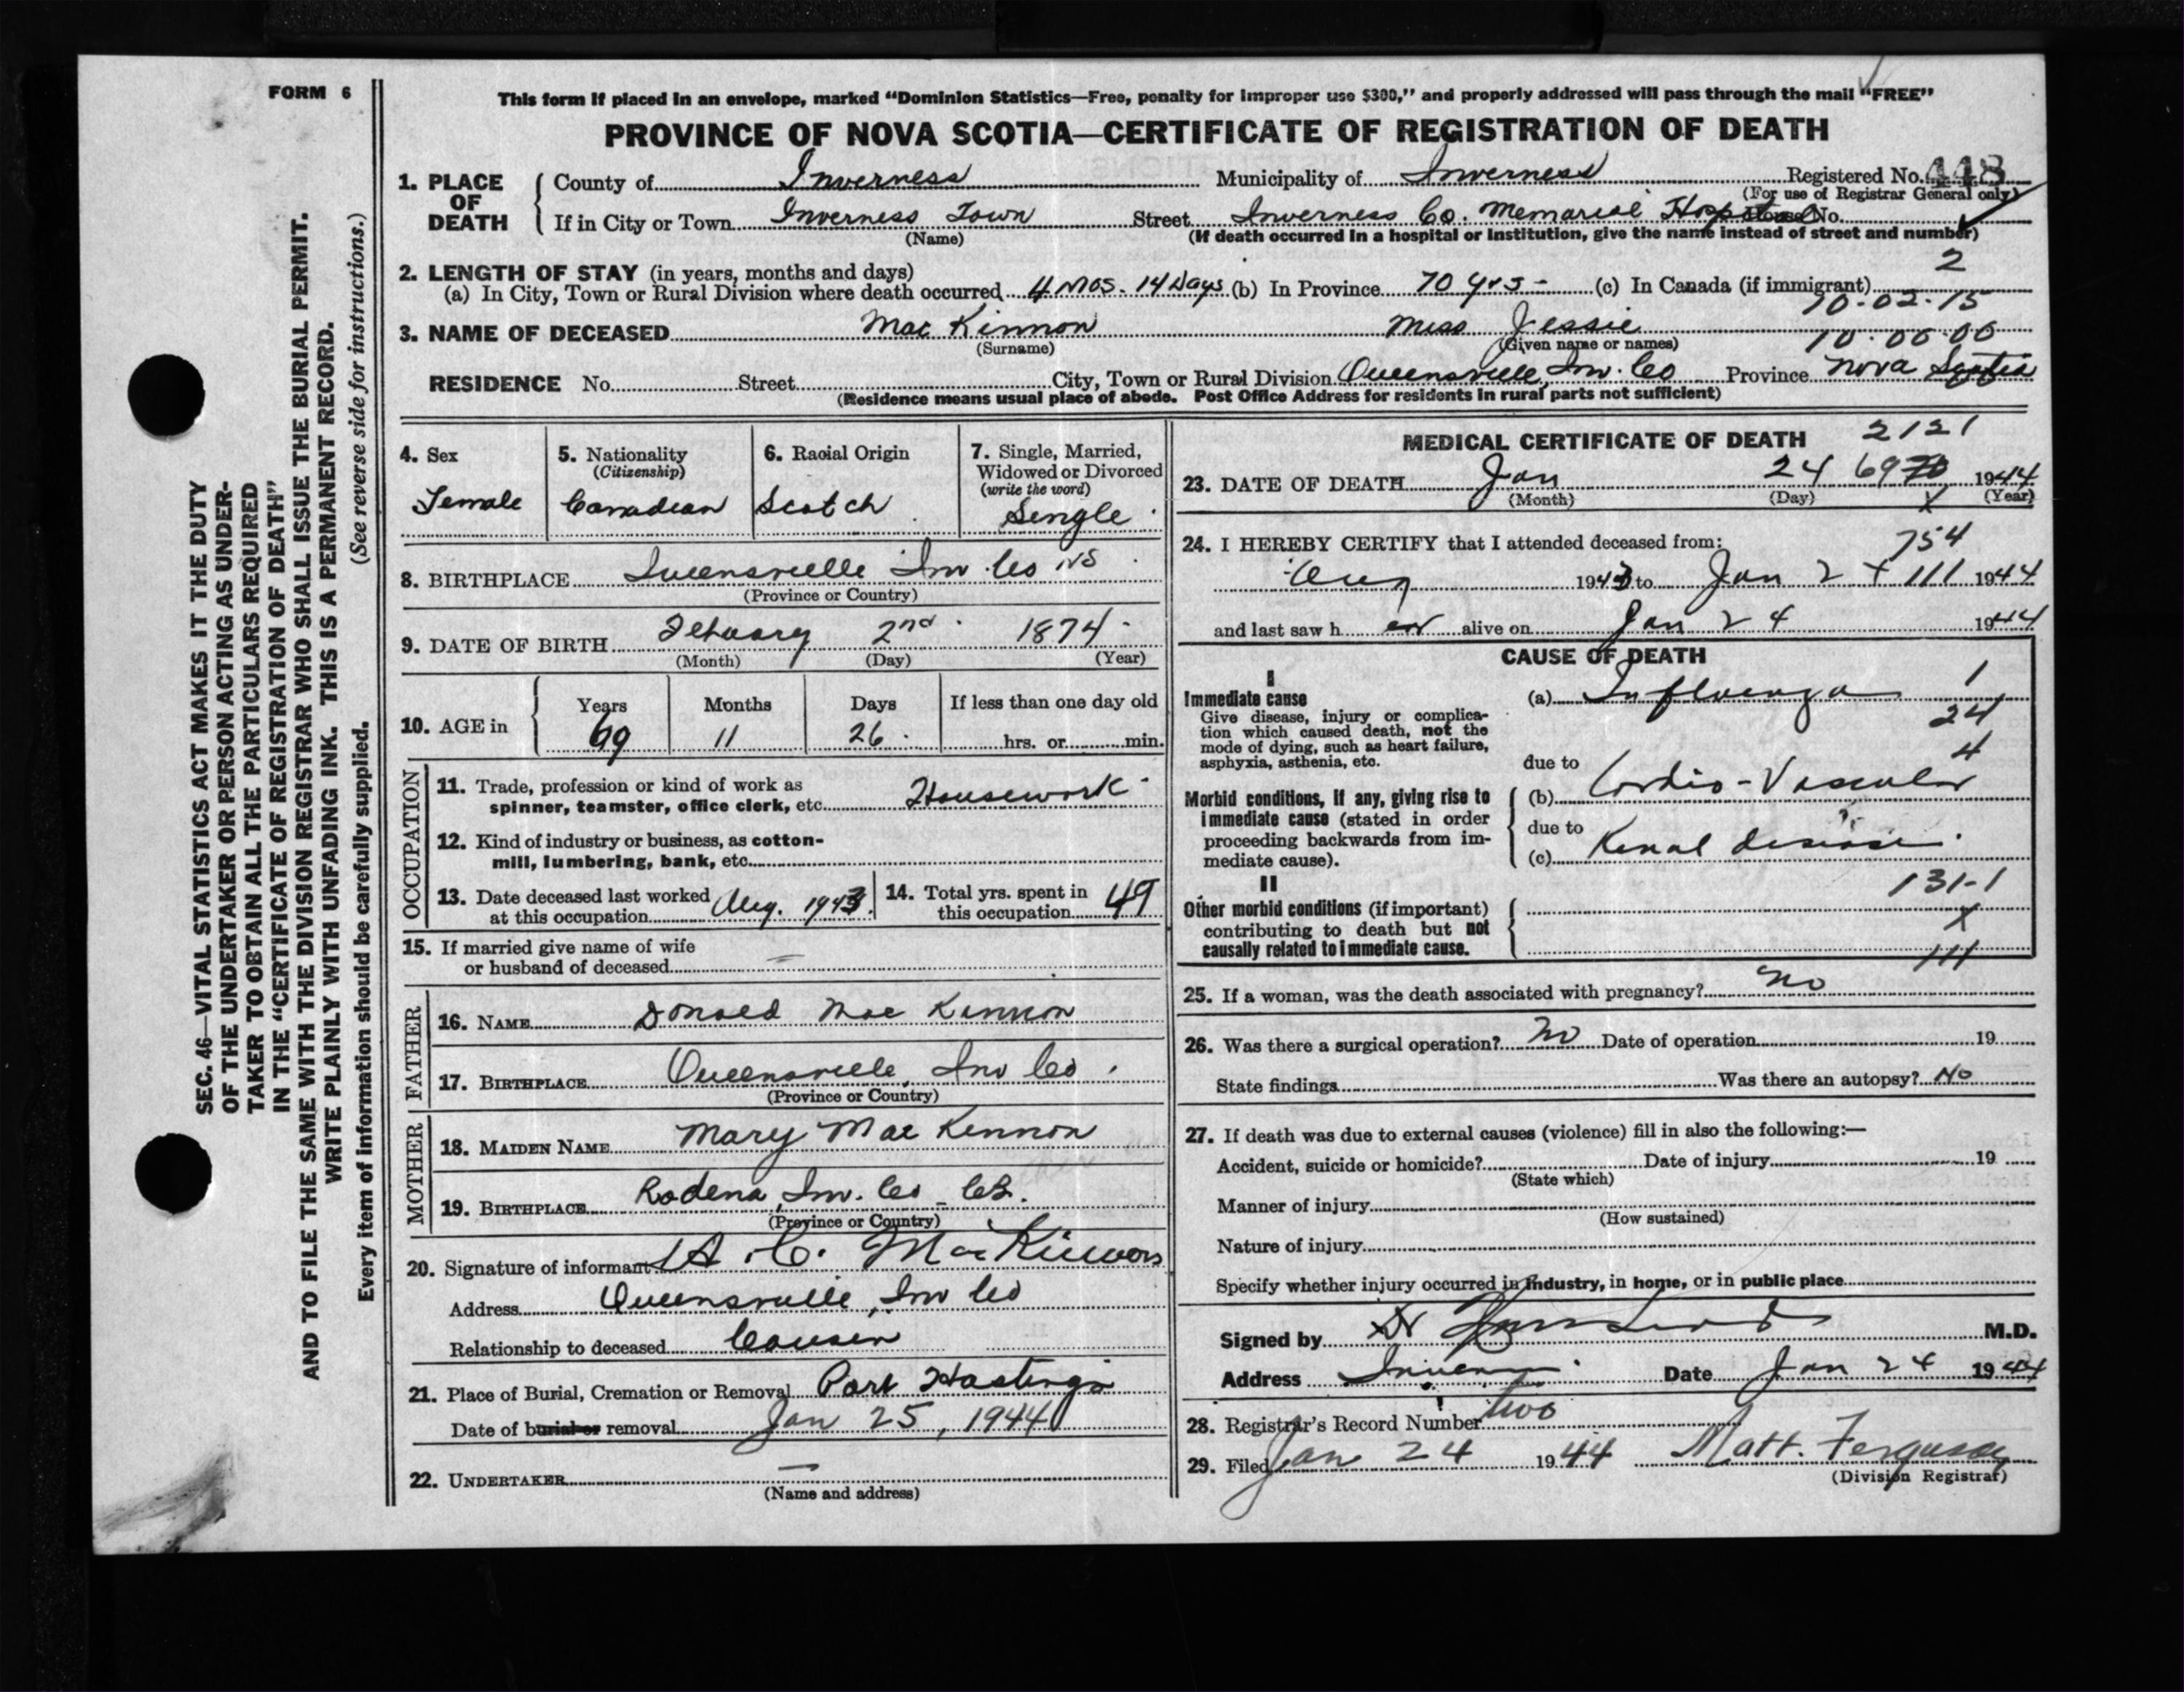 FORM 6
This form if placed in an envelope, marked "Dominion Statistics—Free, penalty for improper use $300," and properly addressed will pass through the mail "FREE"
PROVINCE OF NOVA SCOTIA—CERTIFICATE OF REGISTRATION OF DEATH
1. PLACE OF DEATH
County of Inverness Municipality of Inverness Registered No. 448
(For use of Registrar General only)
If in City or Town Inverness Town Street Inverness Co. Memorial Hospital House No.
(Name) (If death occurred in a hospital or institution, give the name instead of street and number)
2. LENGTH OF STAY (in years, months and days) 2
(a) In City, Town or Rural Division where death occurred 4 Mos. 14 Days (b) In Province 70 yrs - (c) In Canada (if immigrant)
10-02-15
3. NAME OF DECEASED Mac Kinnon Miss Jessie
(Surname) (Given name or names) 10-06-06
RESIDENCE No. Street City, Town or Rural Division Queensville, Inv. Co Province Nova Scotia
(Residence means usual place of abode. Post Office Address for residents in rural parts not sufficient)
4. Sex Female
5. Nationality (Citizenship) Canadian
6. Racial Origin Scotch
7. Single, Married, Widowed or Divorced (write the word) Single
8. BIRTHPLACE Queensville Inv Co NS
(Province or Country)
9. DATE OF BIRTH February 2nd 1874
(Month) (Day) (Year)
10. AGE in Years Months Days If less than one day old
69 11 26 hrs. or min.
OCCUPATION
11. Trade, profession or kind of work as
spinner, teamster, office clerk, etc. Housework
12. Kind of industry or business, as cotton-
mill, lumbering, bank, etc.
13. Date deceased last worked at this occupation Aug. 1943
14. Total yrs. spent in this occupation 49
15. If married give name of wife
or husband of deceased —
FATHER
16. NAME Donald Mac Kinnon
17. BIRTHPLACE Queensville, Inv Co.
(Province or Country)
MOTHER
18. MAIDEN NAME Mary Mac Kinnon
19. BIRTHPLACE Rodena, Inv. Co. CB.
(Province or Country)
20. Signature of informant A. C. MacKinnon
Address Queensville, Inv Co
Relationship to deceased Cousin
21. Place of Burial, Cremation or Removal Port Hastings
Date of burial or removal Jan 25, 1944
22. UNDERTAKER —
(Name and address)
MEDICAL CERTIFICATE OF DEATH 2121
23. DATE OF DEATH Jan 24 69 70 1944
(Month) (Day) X (Year)
24. I HEREBY CERTIFY that I attended deceased from: 754
Aug 1943 to Jan 24 111 1944
and last saw her alive on Jan 24 1944
CAUSE OF DEATH
I
Immediate cause (a) Influenza 1
Give disease, injury or complica-
tion which caused death, not the
mode of dying, such as heart failure,
asphyxia, asthenia, etc.
24
4
due to
(b) Cardio-Vascular
Morbid conditions, if any, giving rise to
immediate cause (stated in order
proceeding backwards from im-
mediate cause).
due to
(c) Renal disease
II 131-1
Other morbid conditions (if important)
contributing to death but not
causally related to immediate cause.
X
111
25. If a woman, was the death associated with pregnancy? No
26. Was there a surgical operation? No Date of operation 19
State findings Was there an autopsy? No
27. If death was due to external causes (violence) fill in also the following:—
Accident, suicide or homicide? Date of injury 19
(State which)
Manner of injury
(How sustained)
Nature of injury
Specify whether injury occurred in industry, in home, or in public place
Signed by Dr M.D.
Address Date Jan 24 1944
28. Registrar's Record Number two
29. Filed Jan 24 1944 Matt. Ferguson
(Division Registrar)
SEC. 46—VITAL STATISTICS ACT MAKES IT THE DUTY
OF THE UNDERTAKER OR PERSON ACTING AS UNDER-
TAKER TO OBTAIN ALL THE PARTICULARS REQUIRED
IN THE "CERTIFICATE OF REGISTRATION OF DEATH"
AND TO FILE THE SAME WITH THE DIVISION REGISTRAR WHO SHALL ISSUE THE BURIAL PERMIT.
WRITE PLAINLY WITH UNFADING INK. THIS IS A PERMANENT RECORD.
Every item of information should be carefully supplied. (See reverse side for instructions.)